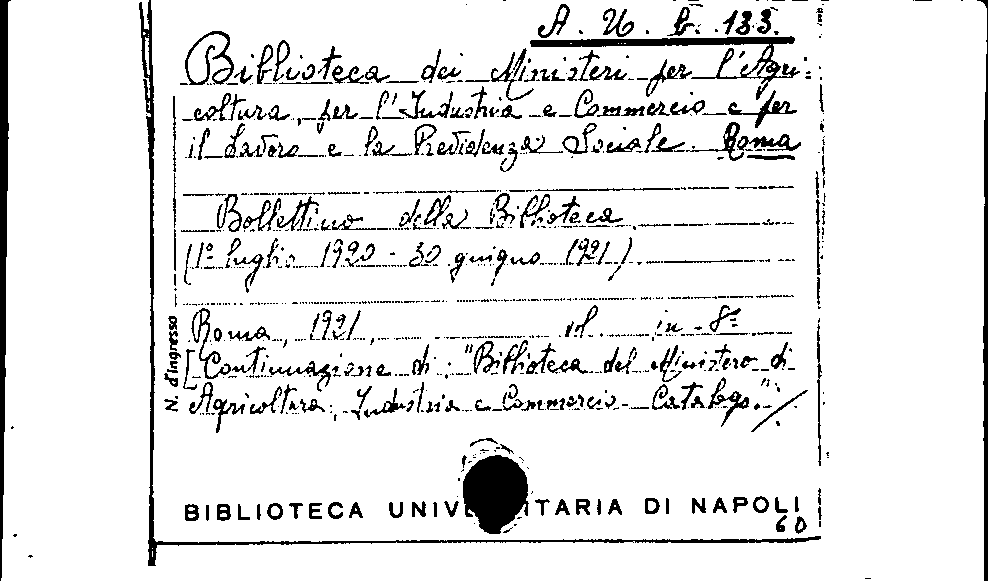 A. U. b. 133.
Biblioteca dei Ministeri per l'Agri-
coltura, per l'Industria e Commercio e per
il Lavoro e la Previdenza Sociale. Roma
Bollettino della Biblioteca.
(1º luglio 1920 - 30 giugno 1921).
Roma, 1921, vol. in -8º
[Continuazione di: "Biblioteca del Ministero di
Agricoltura, Industria e Commercio - Catalogo."
N. d'Ingresso
BIBLIOTECA UNIV ITARIA DI NAPOLI
60